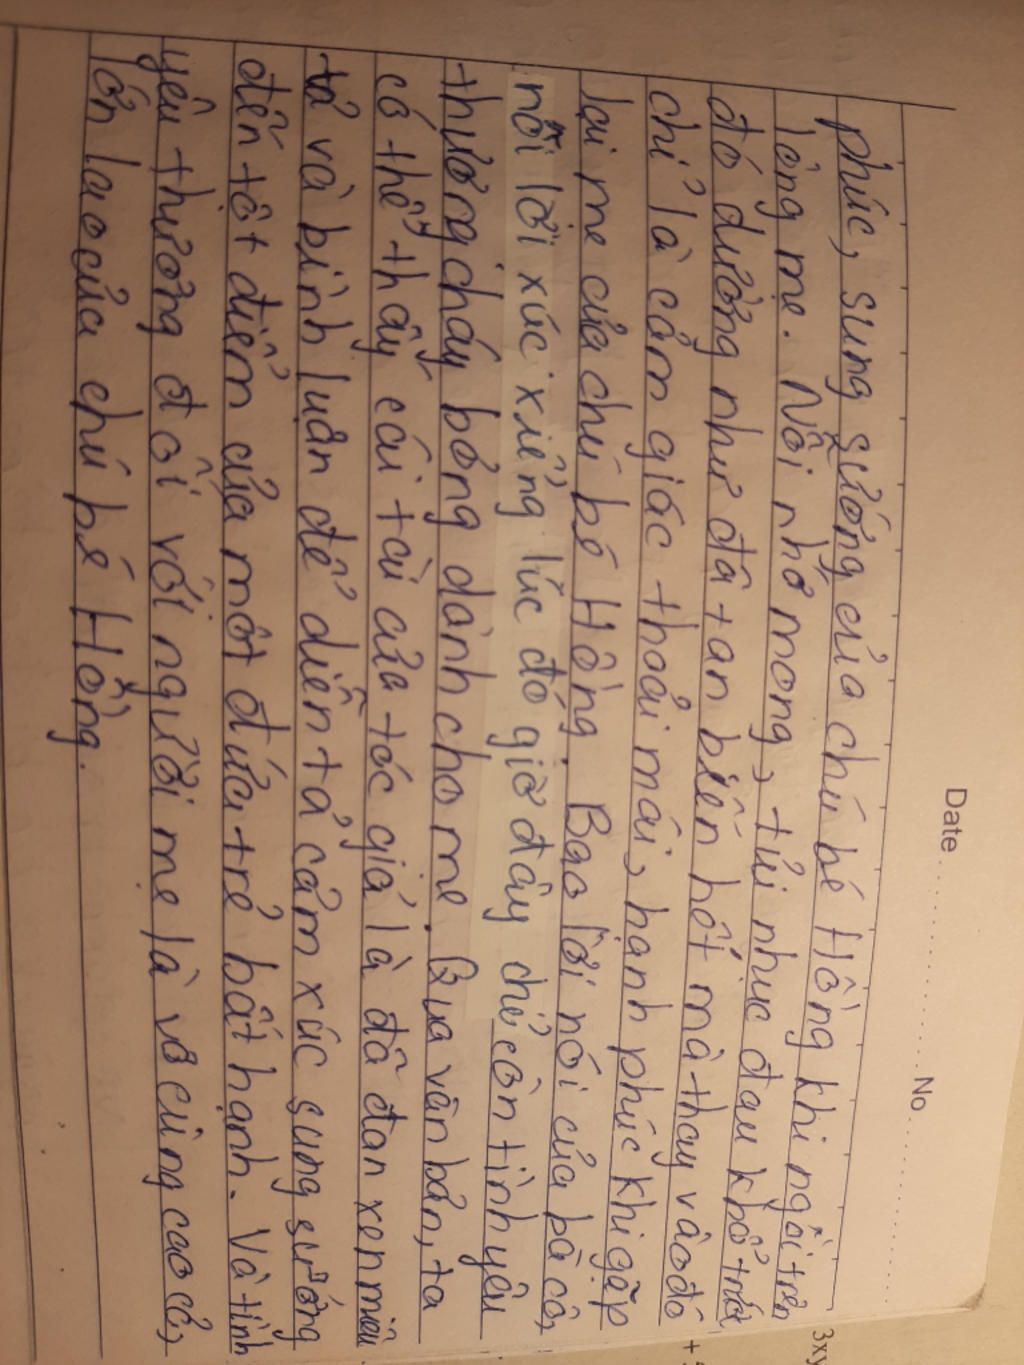 Date.......... No..........
phúc, sung sướng của chú bé Hồng khi ngồi trên
lòng mẹ. Nỗi nhớ mong, tủi nhục đau khổ trước
đó dường như đã tan biến hết mà thay vào đó
chỉ là cảm giác thoải mái, hạnh phúc khi gặp
lại mẹ của chú bé Hồng. Bao lời nói của bà cô,
nỗi lời xúc xiểng lúc đó giờ đây chỉ còn tình yêu
thương cháy bỏng dành cho mẹ. Qua văn bản, ta
có thể thấy cái tài của tác giả là đã đan xen miêu
tả và bình luận để diễn tả cảm xúc sung sướng
đến tột điểm của một đứa trẻ bất hạnh. Và tình
yêu thương đối với người mẹ là vô cùng cao cả,
lớn lao của chú bé Hồng.
3xy